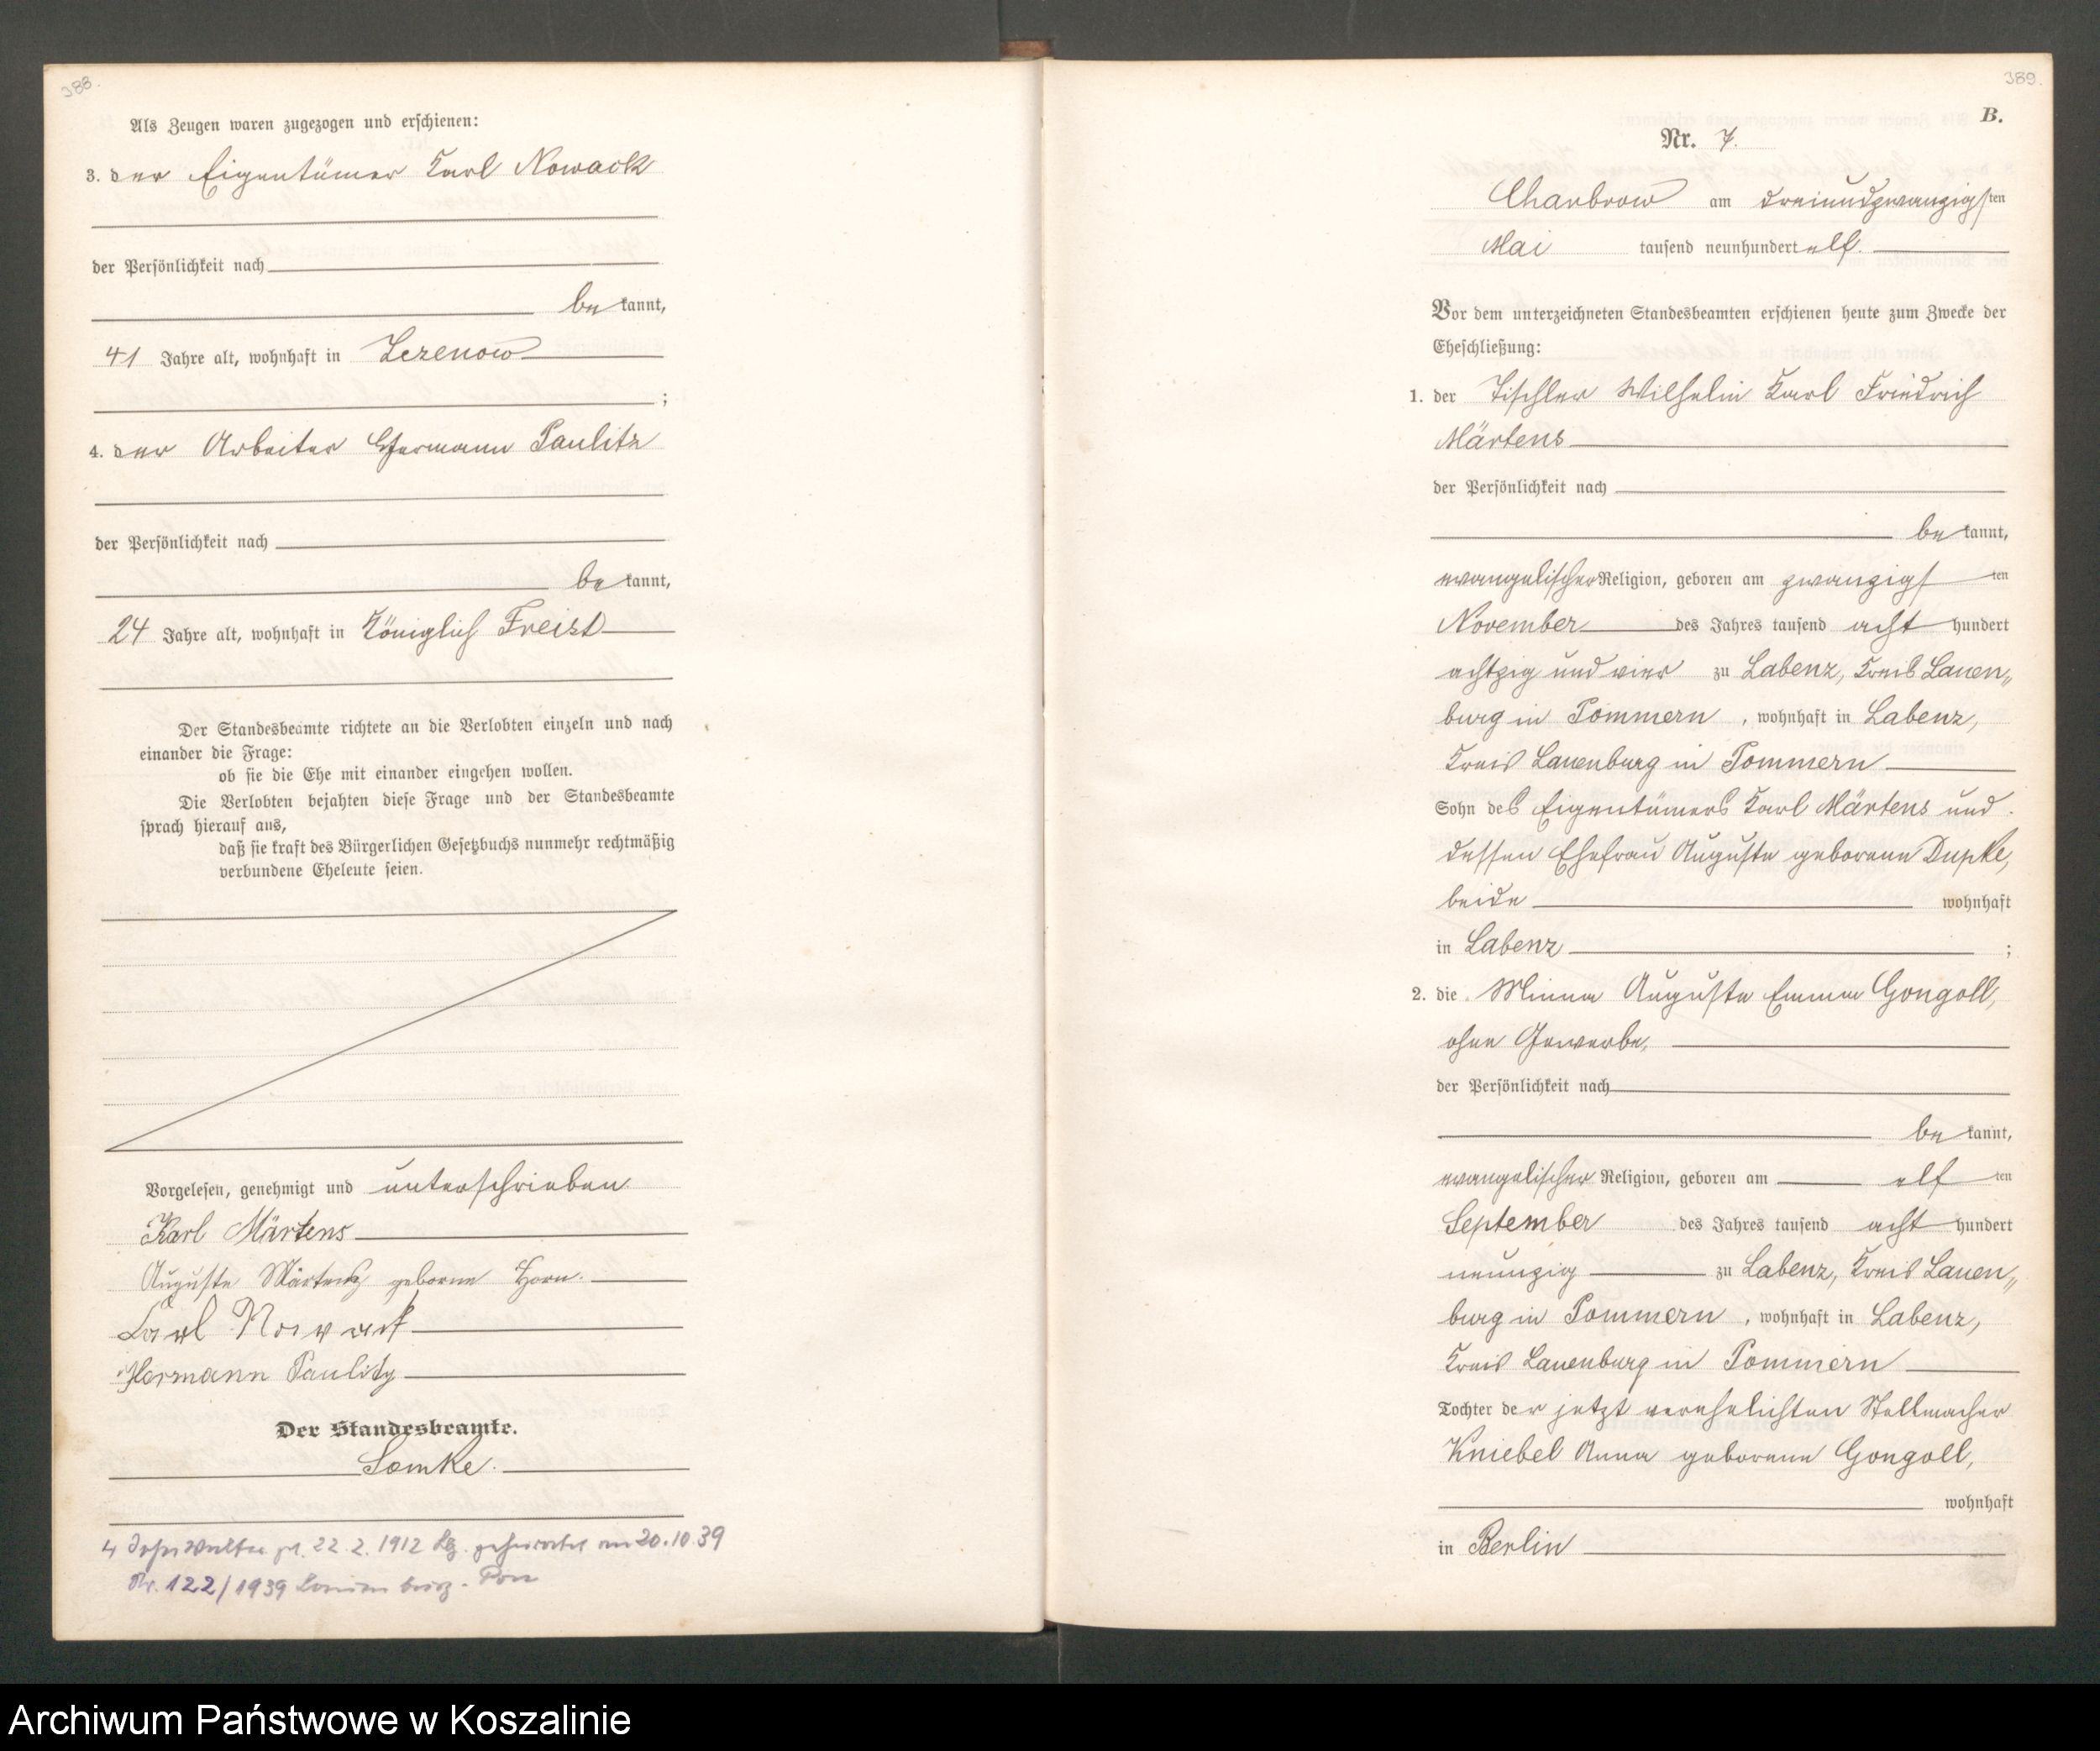 388.
Als Zeugen waren zugezogen und erschienen:
3. der Eigentümer Karl Nowack
der Persönlichkeit nach
be kannt,
41 Jahre alt, wohnhaft in Zezenow
;
4. der Arbeiter Hermann Paulitz
der Persönlichkeit nach
be kannt,
24 Jahre alt, wohnhaft in Königlich Freist
Der Standesbeamte richtete an die Verlobten einzeln und nach
einander die Frage:
ob sie die Ehe mit einander eingehen wollen.
Die Verlobten bejahten diese Frage und der Standesbeamte
sprach hierauf aus,
daß sie kraft des Bürgerlichen Gesetzbuchs nunmehr rechtmäßig
verbundene Eheleute seien.
Vorgelesen, genehmigt und unterschrieben
Karl Märtens
Auguste Märtens geborene Horn.
Karl Nowack
Hermann Paulitz
Der Standesbeamte.
Lemke.
22. 2. 1912 geheiratet am 20.10.39
Nr. 122/1939 Lauenburg-Pom
389.
B.
Nr. 7.
Charbrow am dreiundzwanzigsten
Mai tausend neunhundert elf.
Vor dem unterzeichneten Standesbeamten erschienen heute zum Zwecke der
Eheschließung:
1. der Tischler Wilhelm Karl Friedrich
Märtens
der Persönlichkeit nach
be kannt,
evangelischer Religion, geboren am zwanzigsten
November des Jahres tausend acht hundert
achtzig und vier zu Labenz, Kreis Lauen„
burg in Pommern, wohnhaft in Labenz,
Kreis Lauenburg in Pommern
Sohn des Eigentümers Karl Märtens und
dessen Ehefrau Auguste geborene Dupke,
beide wohnhaft
in Labenz ;
2. die Minna Auguste Emma Gongoll,
ohne Gewerbe,
der Persönlichkeit nach
be kannt,
evangelischer Religion, geboren am elf ten
September des Jahres tausend acht hundert
neunzig zu Labenz, Kreis Lauen„
burg in Pommern, wohnhaft in Labenz,
Kreis Lauenburg in Pommern
Tochter der jetzt verehelichten Stellmacher
Kniebel Anna geborene Gongoll,
wohnhaft
in Berlin
Archiwum Państwowe w Koszalinie